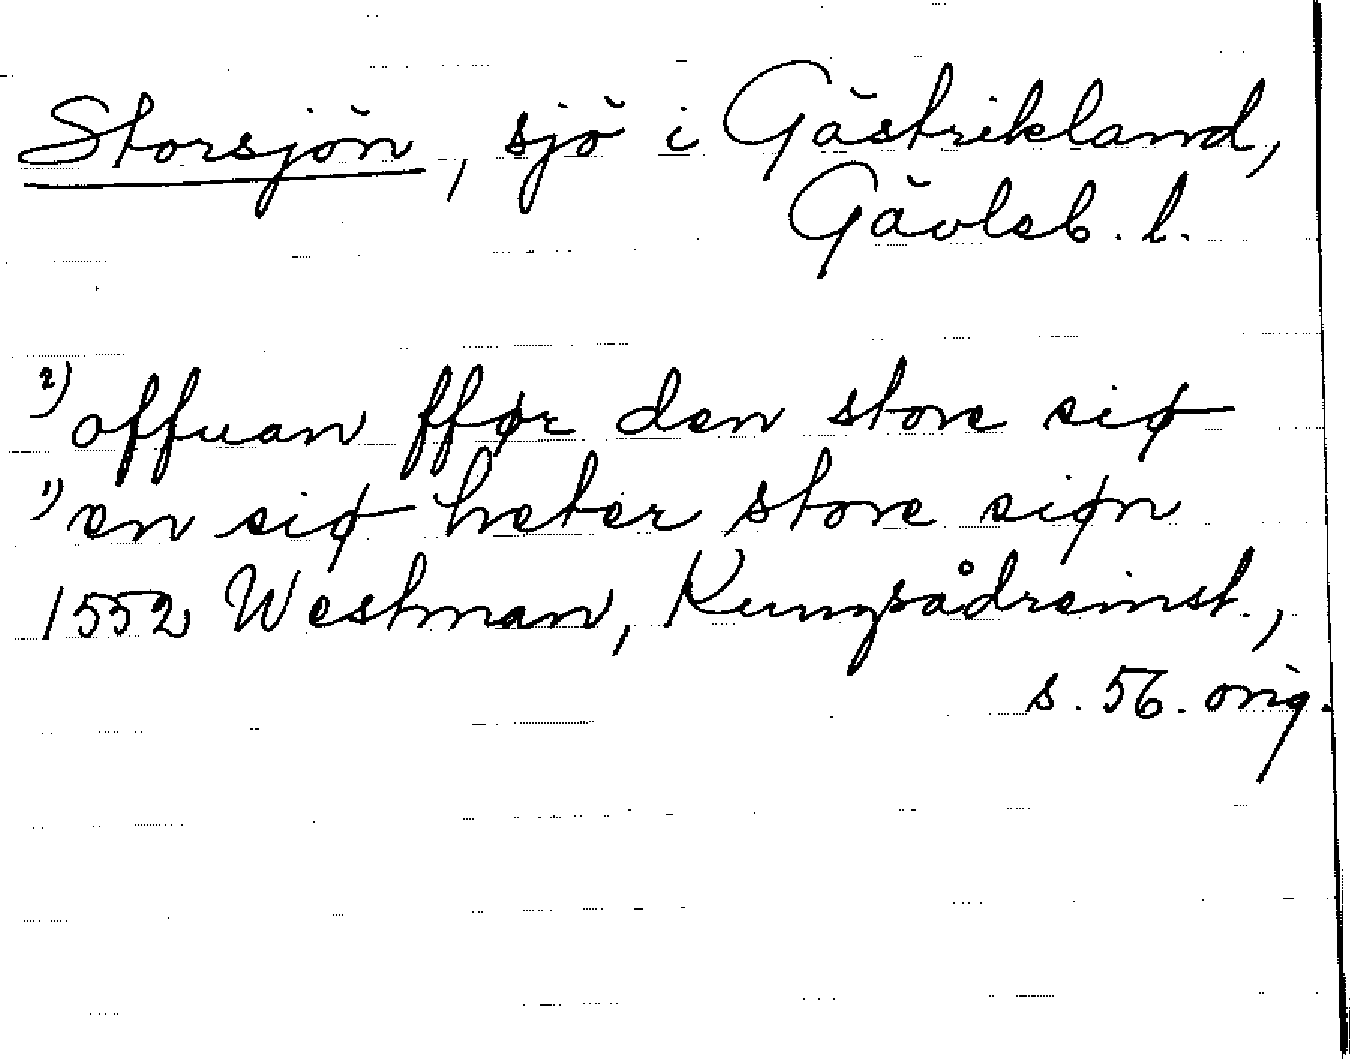 Storsjön, sjö i Gästrikland,
Gävleb. l.
2) offuan fføꝛ den store siø
1) en siø heter store siøn
1552 Westman, Kungsådreinst.,
s. 56. orig.